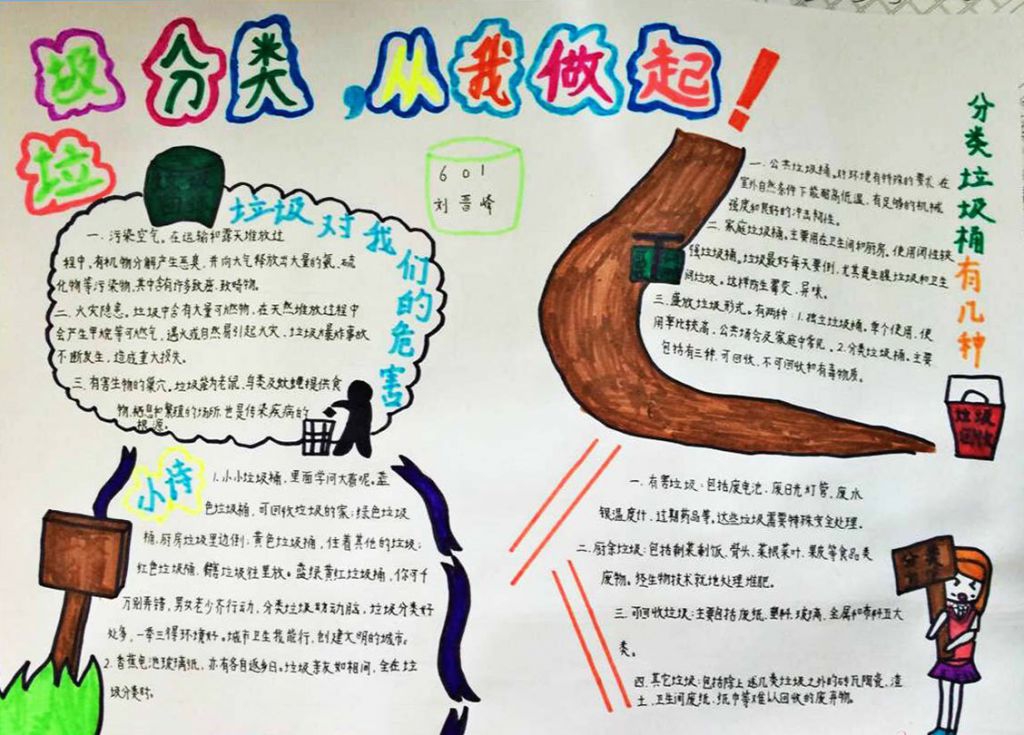 垃圾分类,从我做起!
601
刘晋峰
垃圾对我们的危害
一、污染空气。在运输和露天堆放过
程中,有机物分解产生恶臭,并向大气释放出大量的氨、硫
化物等污染物,其中含有许多致癌、致畸物。
二、火灾隐患。垃圾中含有大量可燃物,在天然堆放过程中
会产生甲烷等可燃气,遇火或自然易引起火灾、垃圾爆炸事故
不断发生,造成重大损失。
三、有害生物的巢穴。垃圾能为老鼠、鸟类及蚊蝇提供食
物、栖息和繁殖的场所,也是传染疾病的
根源。
分类垃圾桶有几种
一、公共垃圾桶。对环境有特殊的要求,在
室外自然条件下能耐高低温,有足够的机械
强度和良好的冲击韧性。
二、家庭垃圾桶。主要用在卫生间和厨房,使用闭性较
强垃圾桶。垃圾最好每天要倒,尤其是生腥垃圾和卫生
间垃圾。这样防生霉变、异味。
三、盛放垃圾形式。有两种:1.独立垃圾桶。单个使用,使
用率比较高,公共场合及家庭中常见。2.分类垃圾桶。主要
包括有三种,可回收、不可回收和有毒物质。
垃圾
回收
小诗
1.小小垃圾桶,里面学问大着呢。蓝
色垃圾桶,可回收垃圾的家;绿色垃圾
桶,厨房垃圾里边倒;黄色垃圾桶,住着其他的垃圾;
红色垃圾桶,垃圾往里放。蓝绿黄红垃圾桶,你可千
万别弄错,男女老少齐行动,分类垃圾动脑,垃圾分类好
处多,一举三得环境好。城市卫生我能行,创建文明的城市。
2.香蕉电池玻璃纸,亦有各自返乡日。垃圾亲友如相问,全在垃
圾分类时。
一、有害垃圾:包括废电池、废日光灯管、废水
银温度计、过期药品等。这些垃圾需要特殊安全处理。
二、厨余垃圾:包括剩菜剩饭、骨头、菜根菜叶、果皮等食品类
废物。经生物技术就地处理堆肥。
三、可回收垃圾:主要包括废纸、塑料、玻璃、金属和布料五大
类。
四、其它垃圾:包括除上述几类垃圾之外的砖瓦陶瓷、渣
土、卫生间废纸、纸巾等难以回收的废弃物。
分类